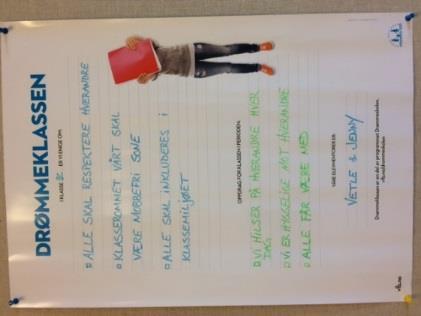 DRØMMEKLASSEN
I KLASSE 8C ER VI ENIGE OM:
◻ ALLE SKAL RESPEKTERE HVERANDRE
◻ KLASSEROMMET VÅRT SKAL
VÆRE MOBBEFRI SONE
◻ ALLE SKAL INKLUDERES I
KLASSEMILJØET
OPPDRAG FOR KLASSEN I PERIODEN:
◻ VI HILSER PÅ HVERANDRE HVER
DAG
◻ VI ER HYGGELIGE MOT HVERANDRE
◻ ALLE FÅR VÆRE MED
VÅRE ELEMENTORLEDERE:
VETLE & JENNY
Drømmeklassen er en del av programmet Drømmeskolen.